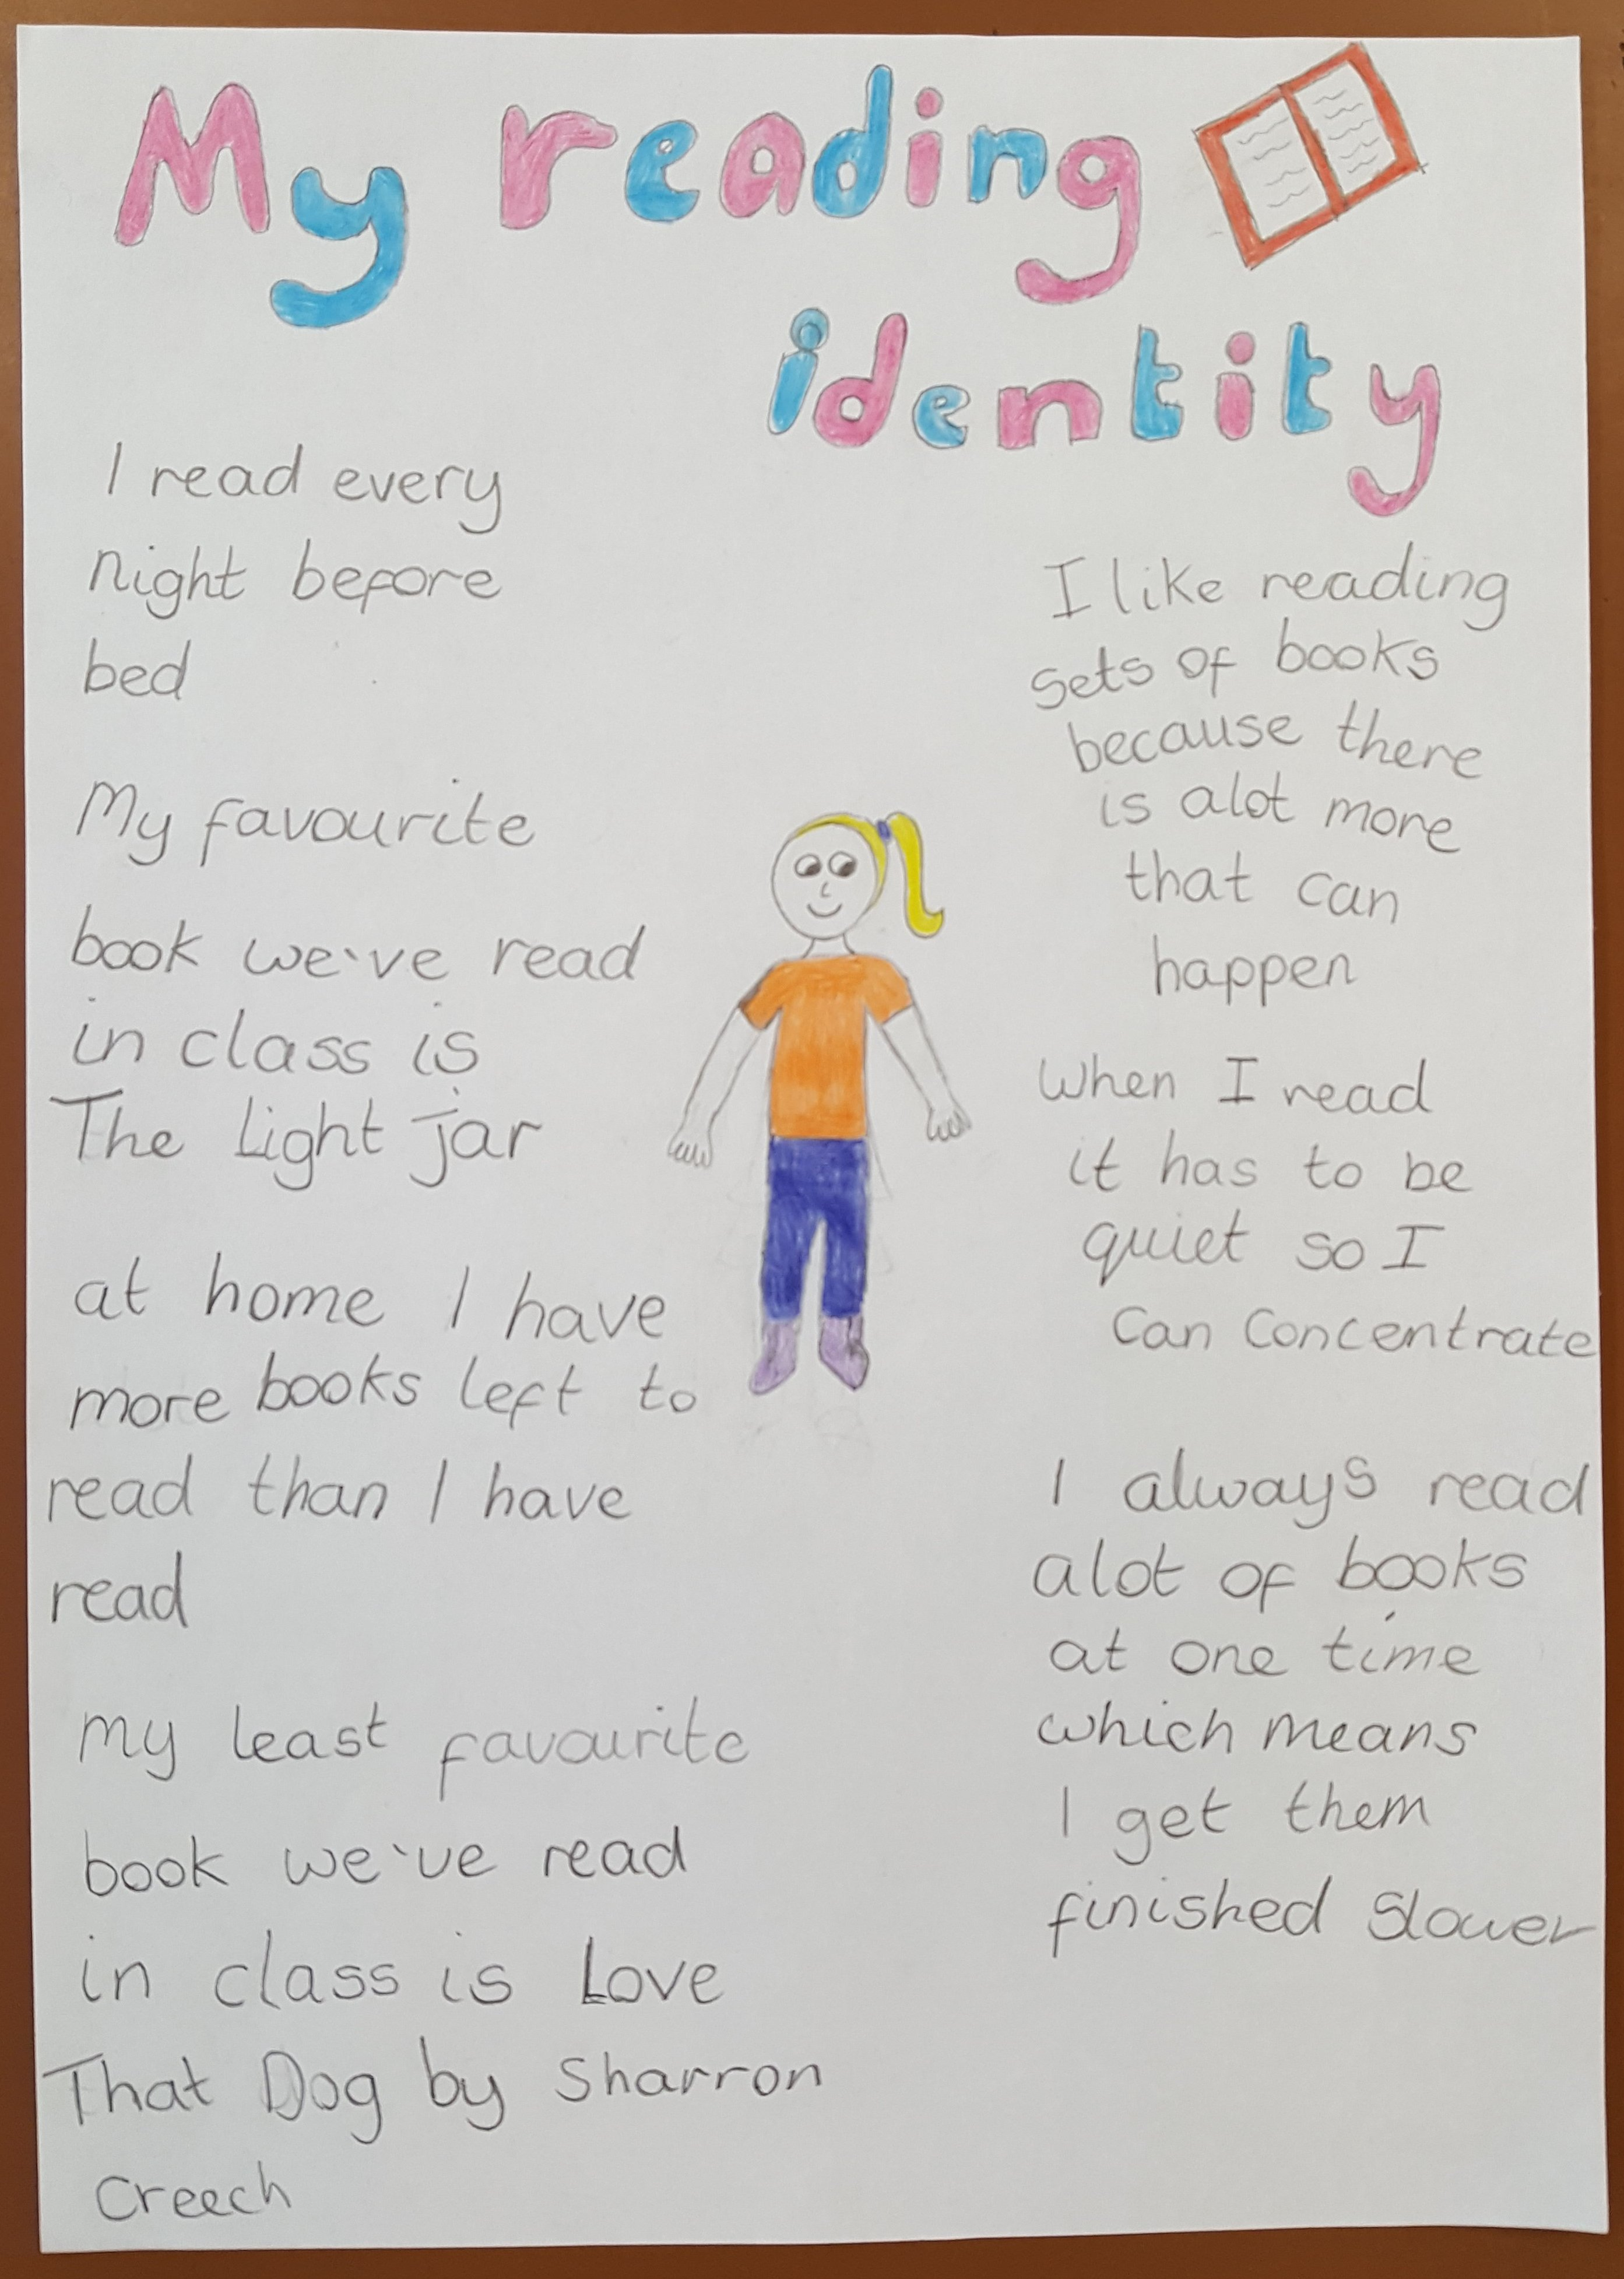 My reading
identity
I read every
night before
bed
My favourite
book we've read
in class is
The Light jar
at home I have
more books left to
read than I have
read
my least favourite
book we've read
in class is Love
That Dog by Sharron
Creech
I like reading
sets of books
because there
is alot more
that can
happen
When I read
it has to be
quiet so I
can concentrate
I always read
alot of books
at one time
which means
I get them
finished slower